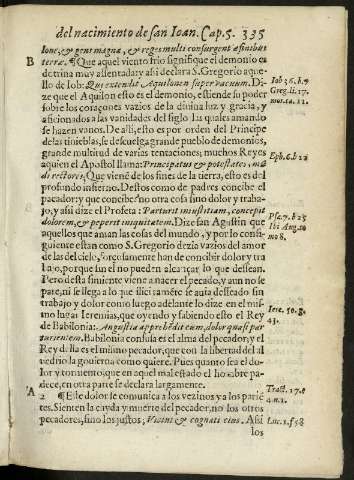 del nacimiento de san Ioan. Cap. 5. 335
lone, & gens magna, & reges multi consurgent a finibus
B terræ. ¶ Que aquel viento frio signifique el demonio es
dotrina muy assentada: y asi declara S. Gregorio aque-
llo de Iob: Qui extendit Aquilonem super vacuum. Di-
ze que el Aquilon esto es el demonio, estiende su poder
sobre los coraçones vazios de la diuina luz y gracia, y
aficionados a las vanidades del siglo las quales amando
se hazen vanos. De alli, esto es por orden del Principe
de las tinieblas, se descuelga grande pueblo de demonios,
grande multitud de varias tentaciones; muchos Reyes
a quien el Apostol llama: Principatus & potestates,
di rectores; Que viene de los fines de la tierra, esto es del
profundo infierno. Destos como de padres concibe el
pecador: y que concibe? no otra cosa sino dolor y traba-
jo, y asi dize el Profeta: Parturit iniustitiam, concepit
dolorem, & peperit iniquitatem. Dize san Agustin que
aquellos que aman las cosas del mundo, y por lo consi-
guiente estan como S. Gregorio dezia vazios del amor
de las del cielo, forçosamente han de concibir dolor y tra
bajo, porque sin el no pueden alcançar lo que dessean.
Pero desta simiente viene a nacer el pecado, y aun no se
pare, ni se llega a lo que ilicitamẽte se auia desseado sin
trabajo y dolor como luego adelante lo dize en el mis-
mo lugar Ieremias, que oyendo y sabiendo esto el Rey
de Babilonia: Angustia apprehẽdit eum, dolor quasi par
turientem. Babilonia confusa es el alma del pecador; y el
Rey della es el mismo pecador, que con la libertad del al
uedrio la gouierna como quiere. Pues quanto sea el do-
lor y tormento, que en aquel mal estado el hombre pa-
dece, en otra parte se declara largamente.
A 2 ¶ Este dolor se comunica a los vezinos y a los parie-
tes. Sienten la cayda y muerte del pecador, no los otros
pecadores, sino los justos; Vicini & cognati eius. Asi
los
Iob 26. b. 7
Greg. li. 17.
Eph. 6. b. 12
Psa. 7. b. 15
Ibi Aug. to
mo 8.
Iere. 50. g.
43.
Tract. 17.
Luc. 1. f 58